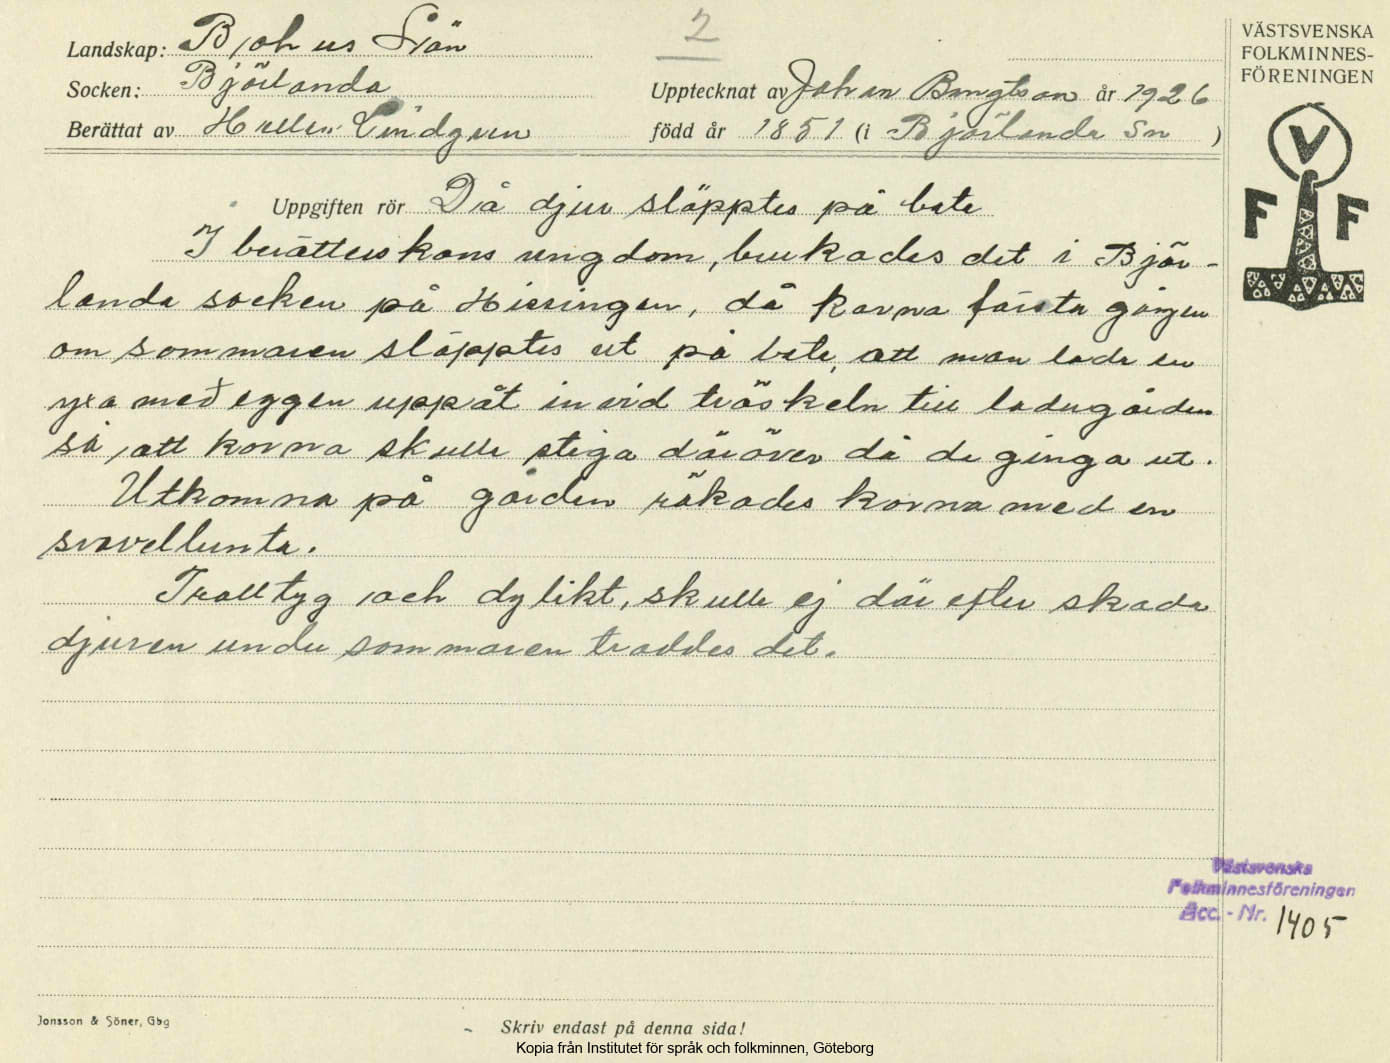 2
Landskap: Bohus Län
Socken: Björlanda
Upptecknat av Johan Bengtson år 1926
Berättat av Helen Lindgren
född år 1851 (i Björlanda Sn )
VÄSTSVENSKA
FOLKMINNES-
FÖRENINGEN
V
F F
Uppgiften rör Då djur släpptes på bete
I berätterskans ungdom, brukades det i Björ-
landa socken på Hisingen, då korna första gången
om sommaren släpptes ut på bete, att man lade en
yxa med eggen uppåt invid tröskeln till ladugården
så, att korna skulle stiga däröver då de gingo ut.
Utkomna på gården rökades korna med en
svavellunta.
Trolltyg och dylikt, skulle ej där efter skada
djuren under sommaren troddes det.
Västsvenska
Folkminnesföreningen
Acc. - Nr. 1405
Jonsson & Söner, Gbg
Skriv endast på denna sida!
Kopia från Institutet för språk och folkminnen, Göteborg